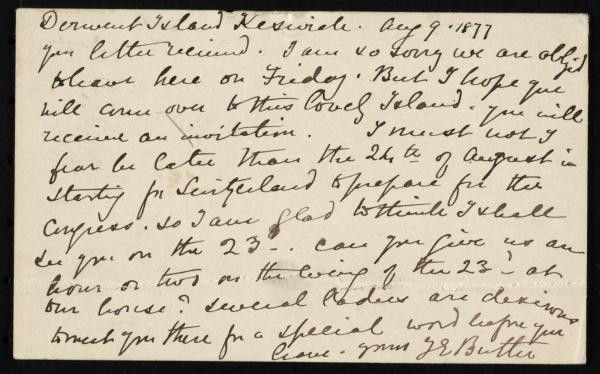 Derwent Island Keswick. Aug 9. 1877
your letter received. I am so sorry we are obliged
to leave here on Friday. But I hope you
will come over to this lovely Island. you will
receive an invitation. I must not I
fear be later than the 24th of August in
starting for Switzerland to prepare for the
Congress. so I am glad to think I shall
see you on the 23rd. can you give us an
hour or two on the evening of the 23rd at
our house? several ladies are desirous
to meet you there for a special word before you
leave. yours J E Butler